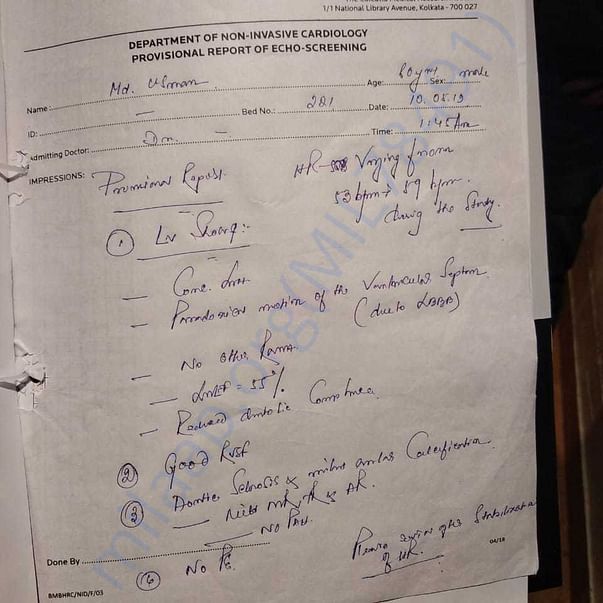 1/1 National Library Avenue, Kolkata - 700 027
DEPARTMENT OF NON-INVASIVE CARDIOLOGY
PROVISIONAL REPORT OF ECHO-SCREENING
Name : Md. Usman Age: 60yrs Sex: male
ID: — Bed No.: 281 Date: 10.05.19
Admitting Doctor: Dr. — Time: 1:45Am
IMPRESSIONS: Provisional Report. HR- Varying from
53 bpm → 59 bpm.
during the Study.
① LV Showing:-
— Conc. LVH
— Paradoxical motion of the Ventricular Septum
(due to LBBB)
— No other RWMA.
— LVEF = 55%
— Reduced diastolic Compliance.
② Good RVSF
③ Aortic Sclerosis & mitral annular Calcification
— Mild MR, TR & AR.
— No PAH.
Please review after Stabilization
of HR.
Done By
⑥ No PE.
BMBHRC/NID/F/03
04/18
milaap.org/MIL